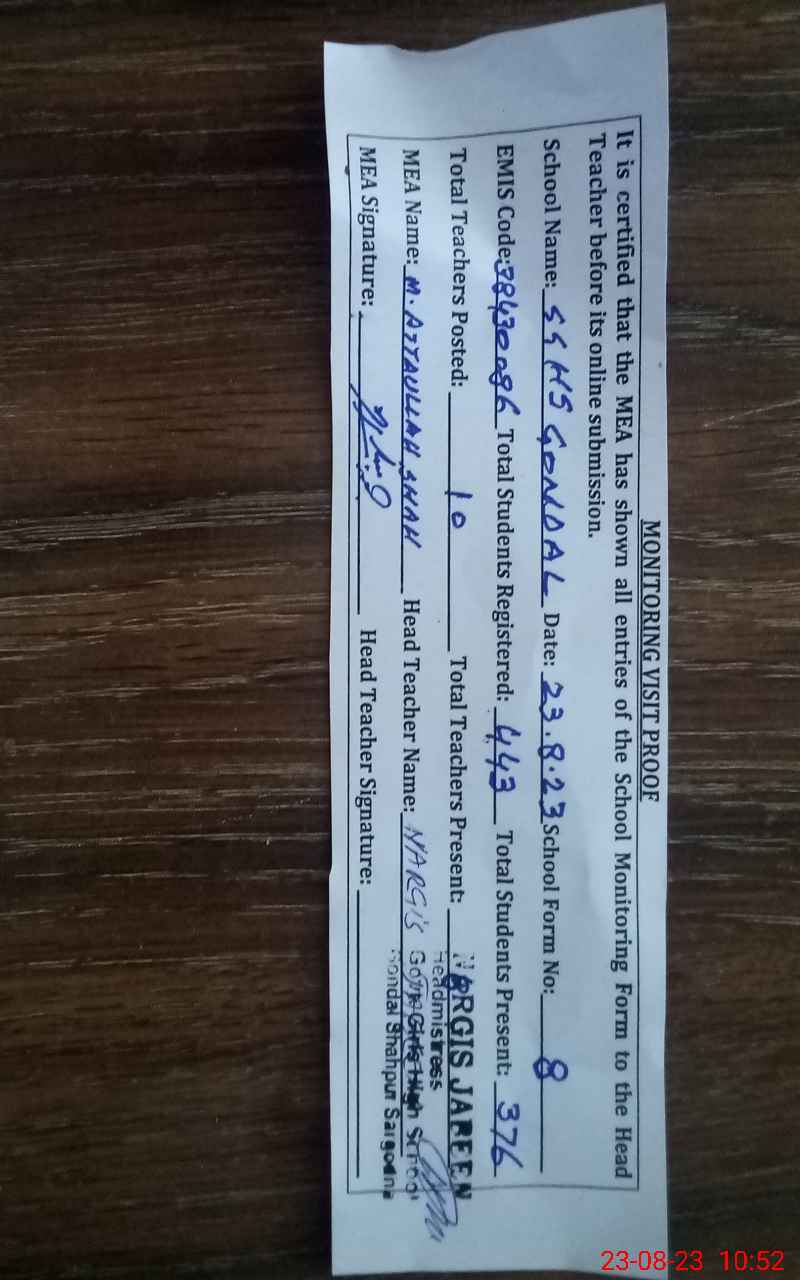 MONITORING VISIT PROOF
It is certified that the MEA has shown all entries of the School Monitoring Form to the Head
Teacher before its online submission.
School Name: GGHS GONDAL Date: 23.8.23 School Form No: 8
EMIS Code: 38430086 Total Students Registered: 443 Total Students Present: 376
Total Teachers Posted: 10 Total Teachers Present:
MEA Name: M. ATTAULLAH SHAH Head Teacher Name: NARGIS
MEA Signature: Head Teacher Signature:
NARGIS JABEEN
Headmistress
Govt. Girls High School
Gondal Shahpur Sargodha
23-08-23 10:52